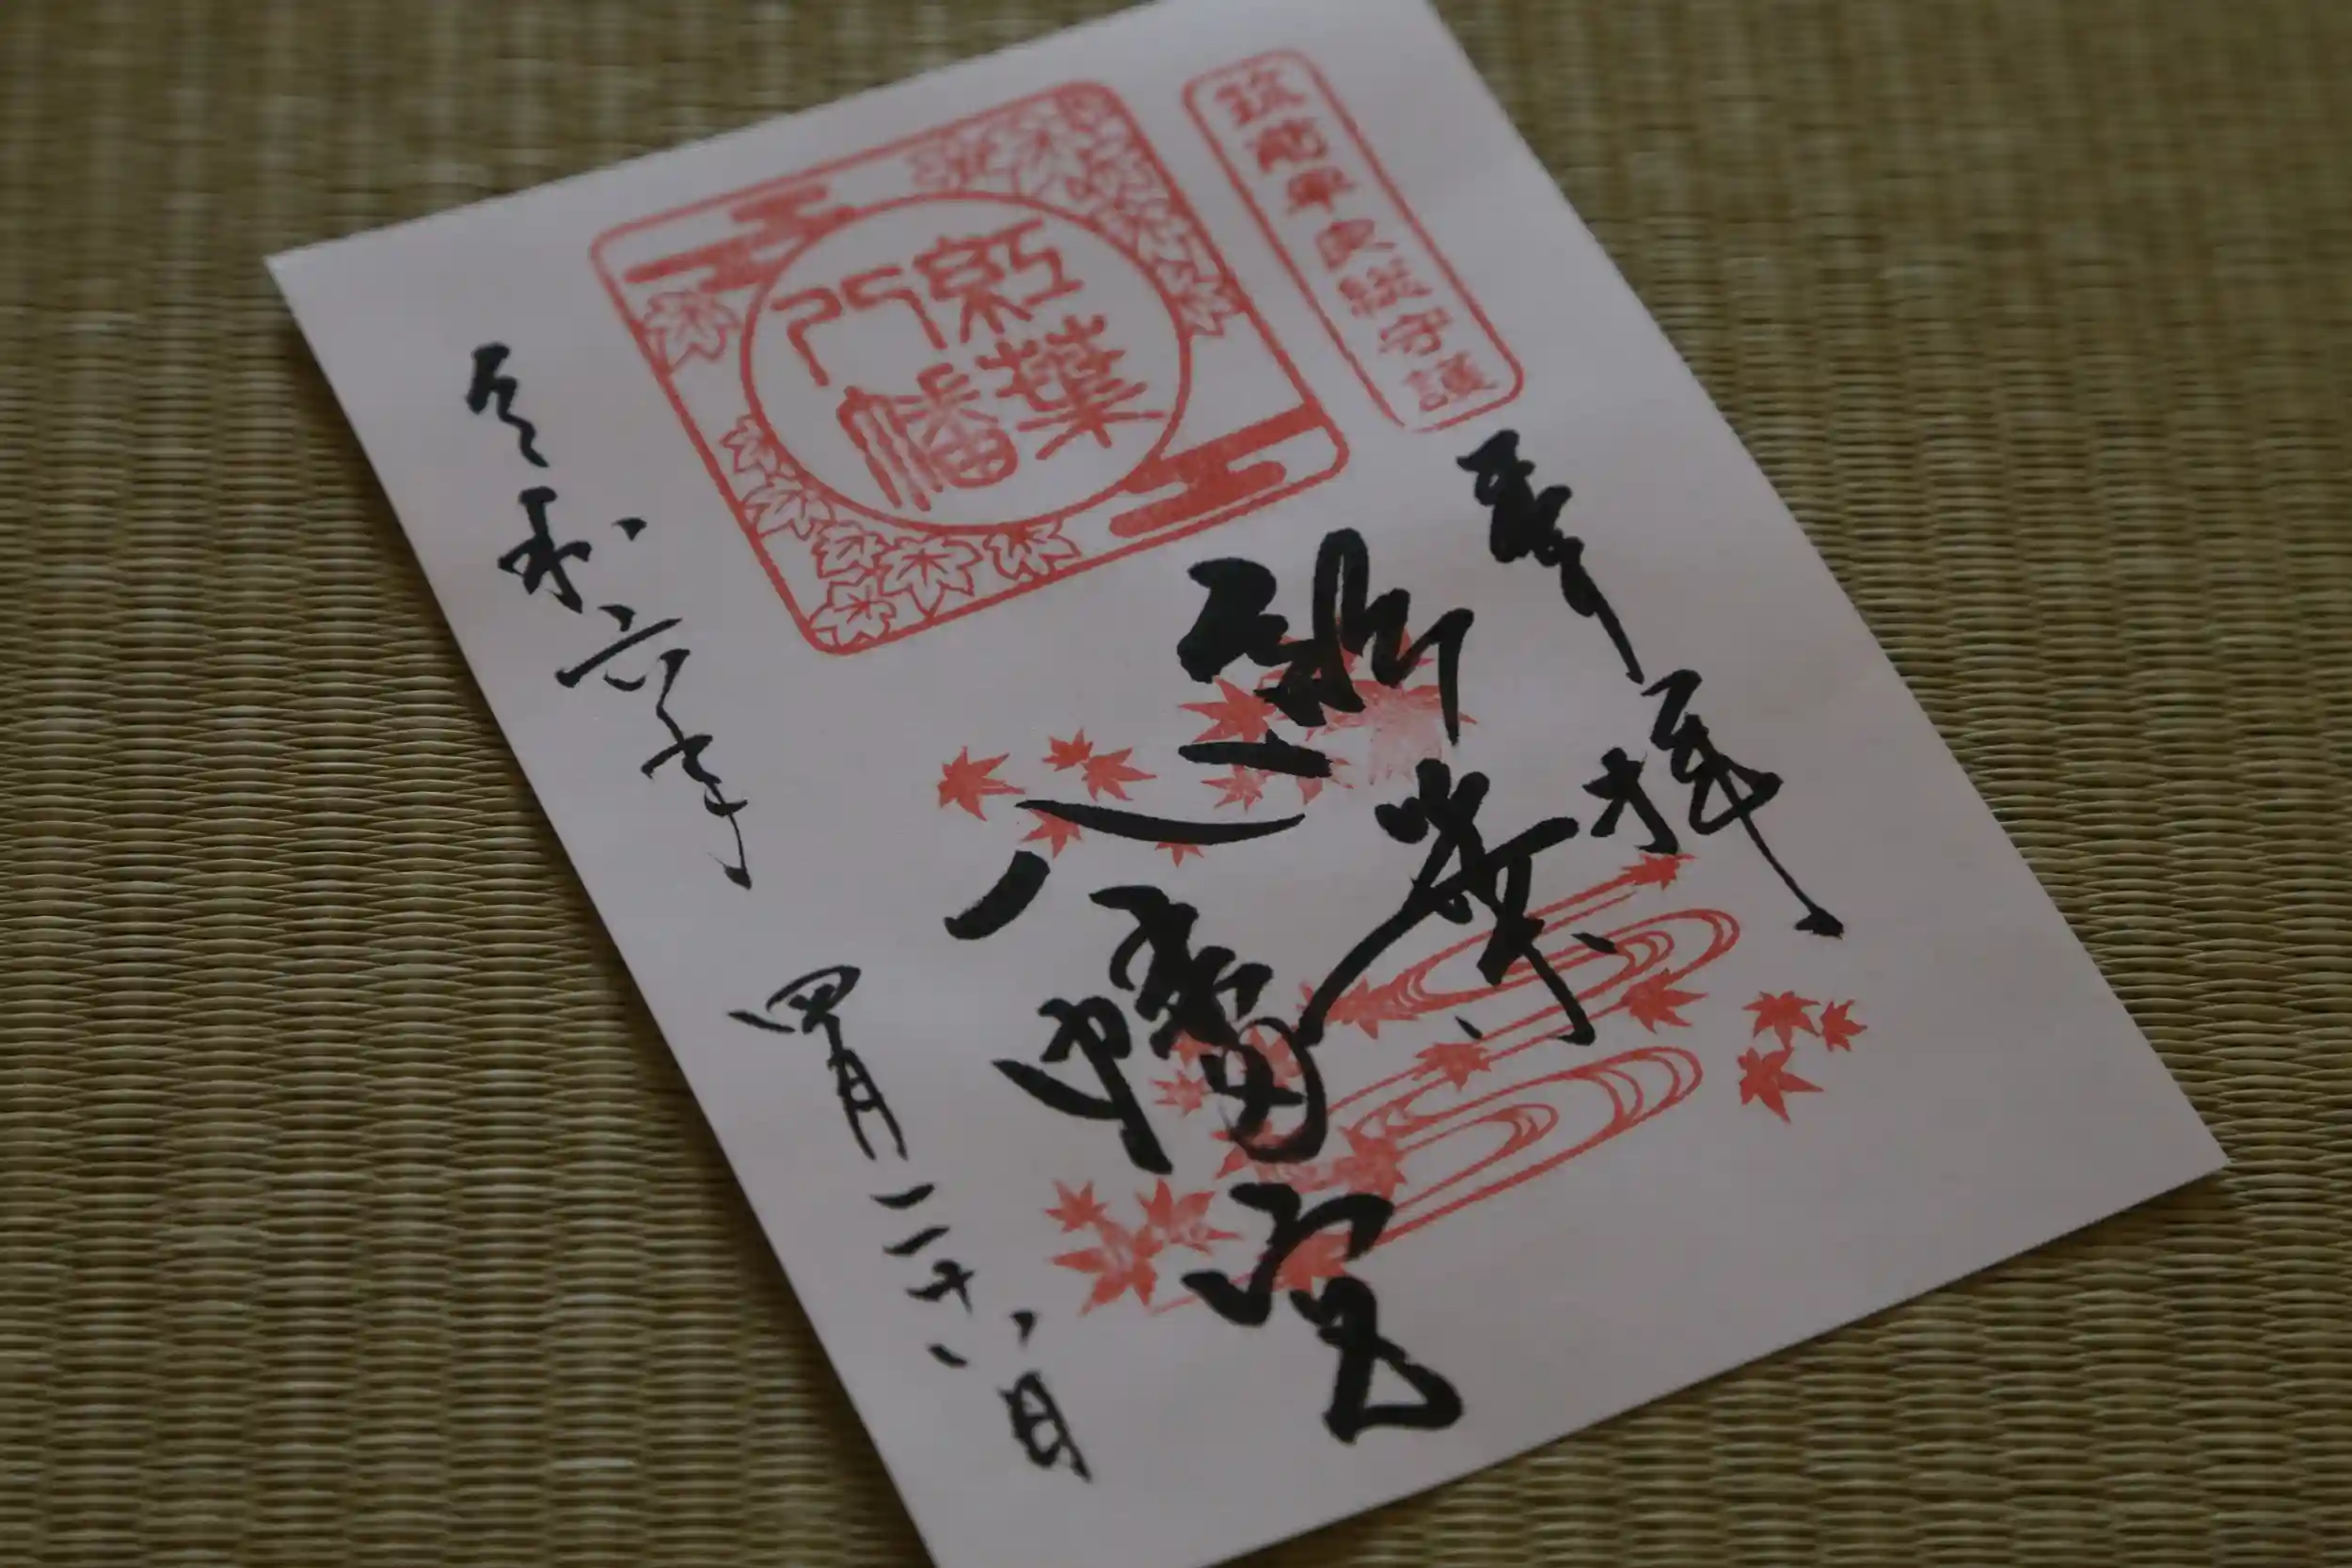 筑前早良総守護
奉拝
紅葉
八幡
紅葉
八幡宮
令和六年 四月二十八日